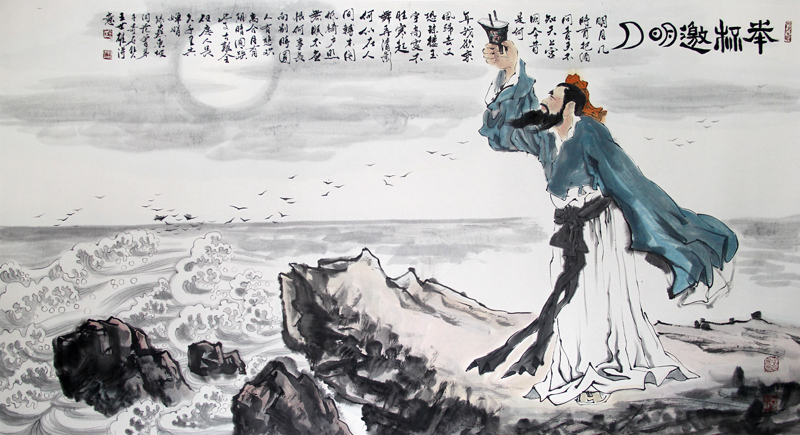 举杯邀明月
明月几
时有把酒
问青天不
知天上宫
阙今昔
是何
年我欲乘
风归去又
恐琼楼玉
宇高处不
胜寒起
舞弄清影
何似在人
间转朱阁
低绮户照
無眠不应
恨何事长
向别时圆
人有悲欢
离合月有
阴晴圆缺
此事难全
但愿人长
久千里共
婵娟
苏东坡